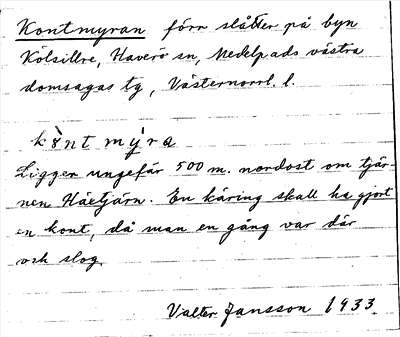 Kontmyran förr slåtter på byn
Kölsillre, Haverö sn, Medelpads västra
domsagas tg, Västernorrl. l.
kònt mỳra
Ligger ungefär 500 m. nordost om tjär-
nen Håetjärn. En käring skall ha gjort
en kont, då man en gång var där
och slog.
Valter Jansson 1933.